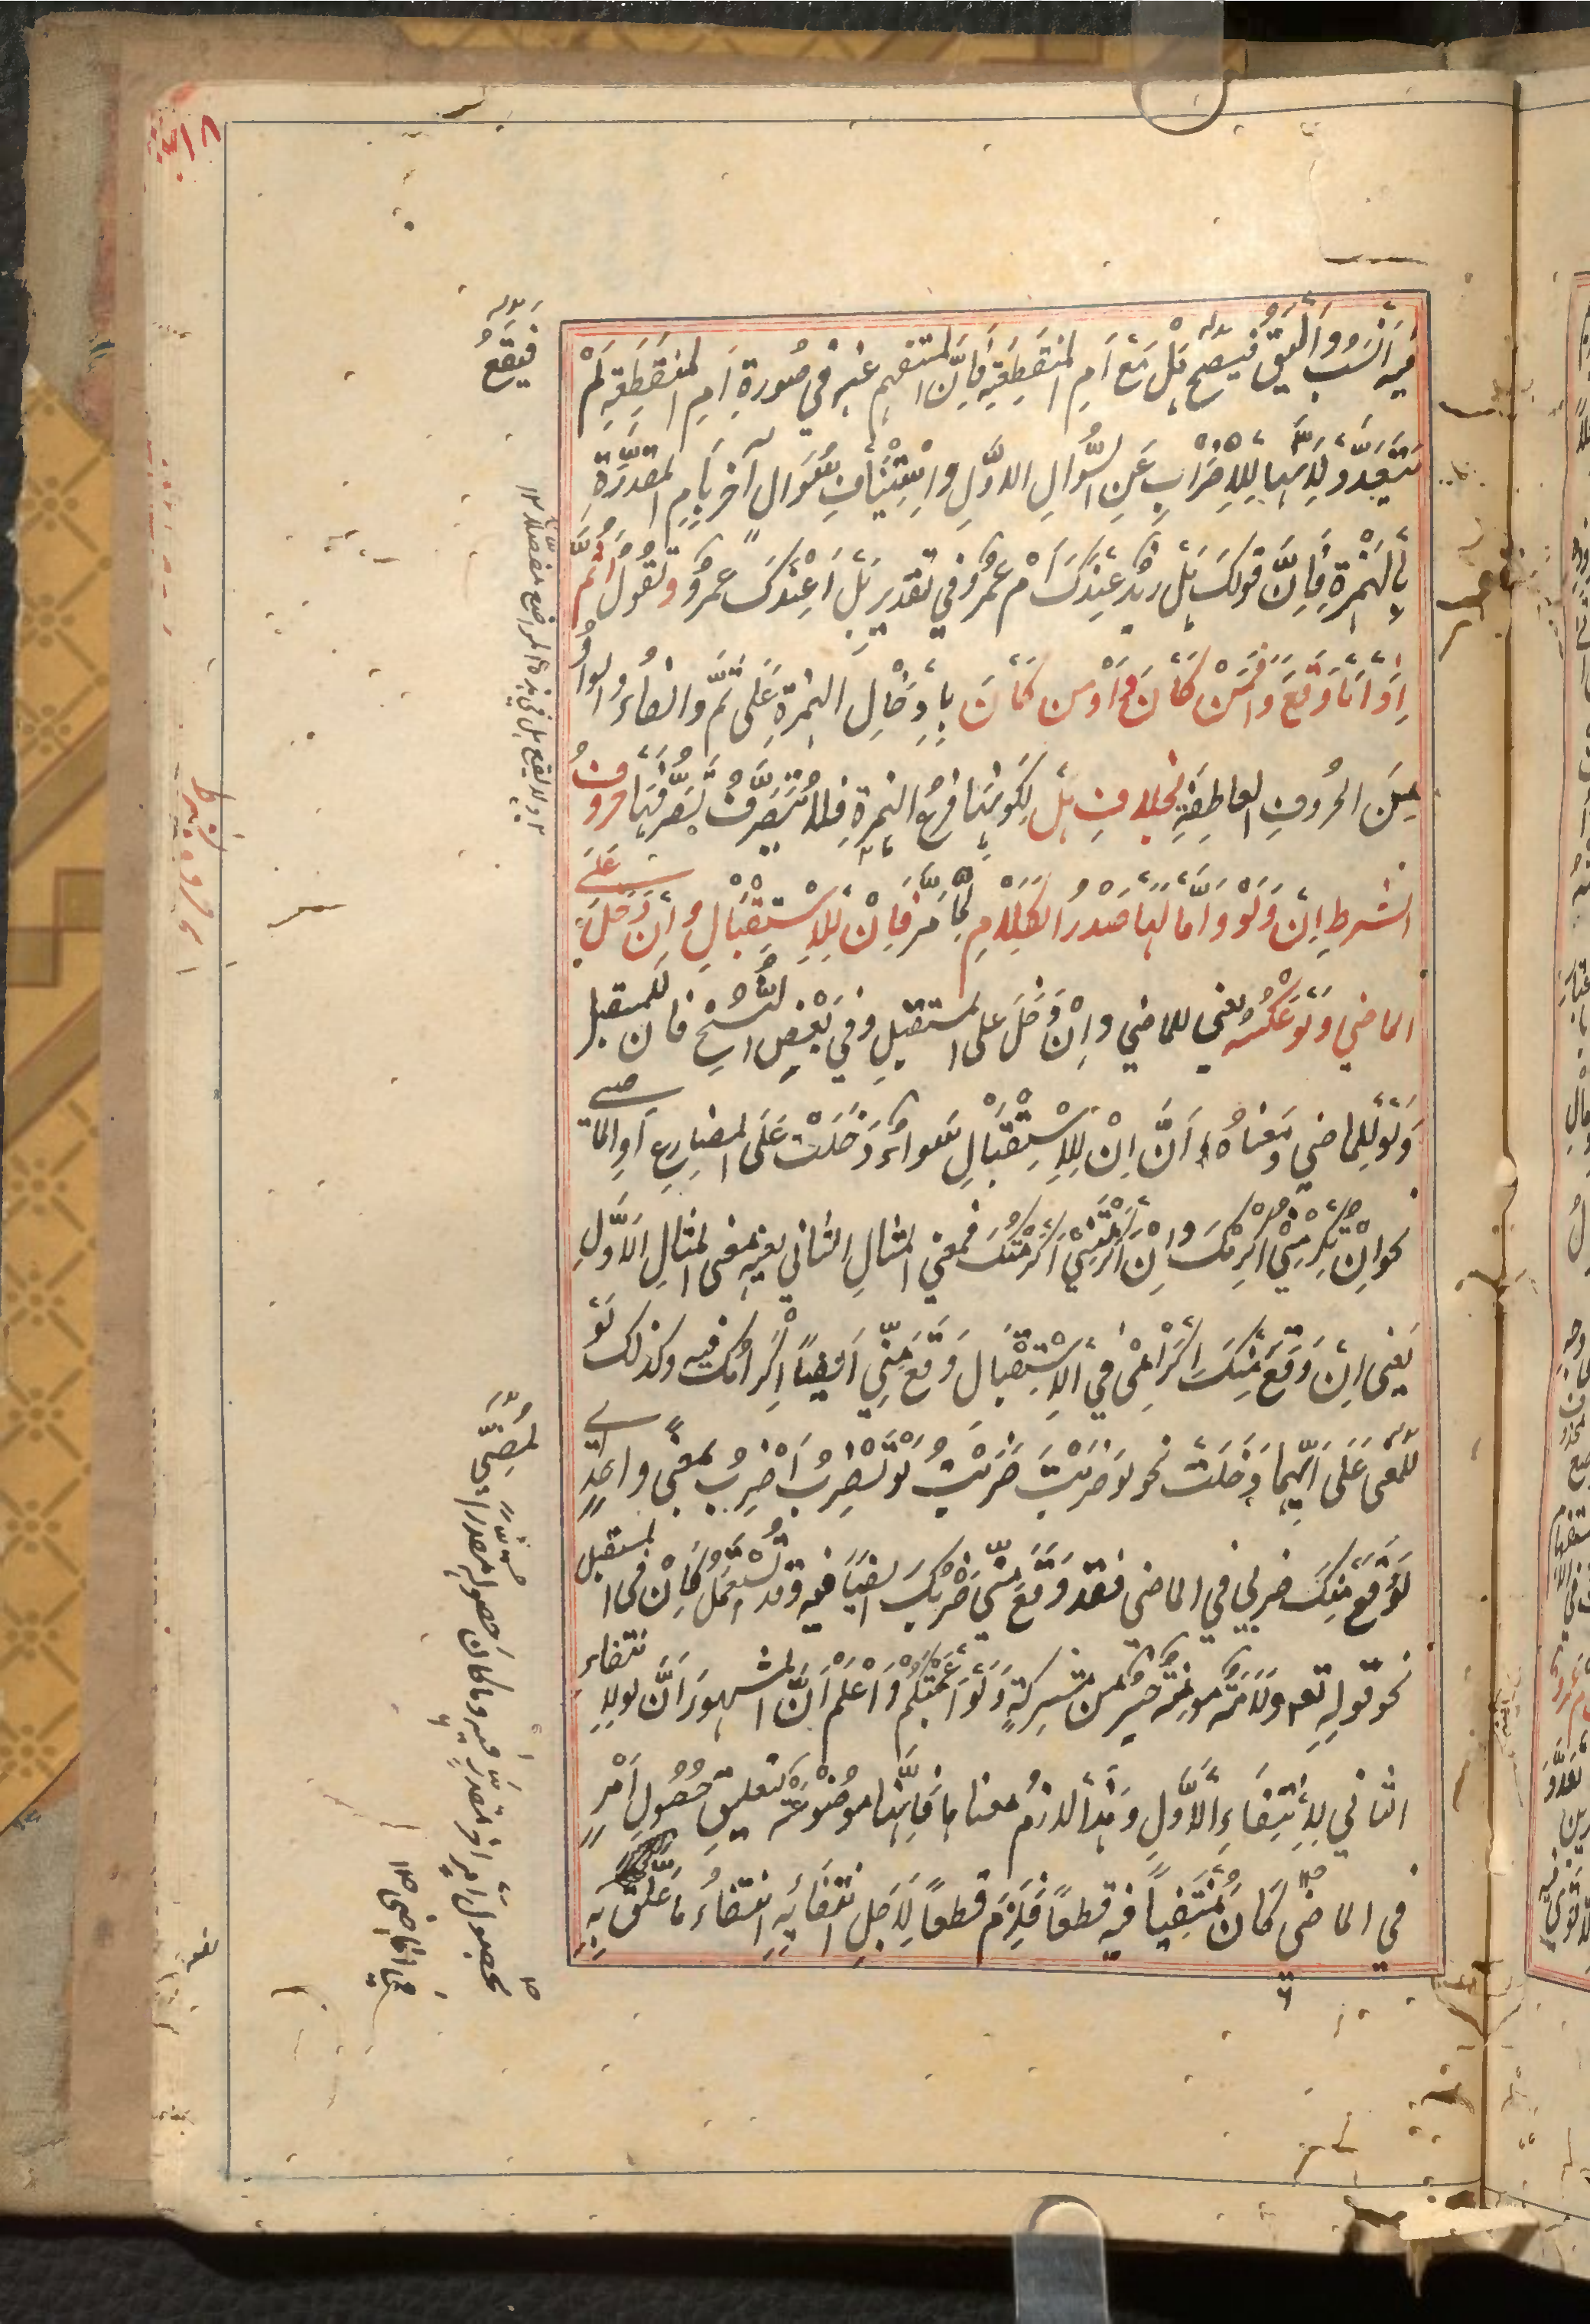 فيه أَنْسَبُ وَأَلْيَقُ فيصح هَلْ مَعَ أَمِ المنقَطِعَةِ فَإِنَّ المستفهم عنه في صُورَةِ أَمِ المنقَطِعَةِ لَمْ
يَتَعَدَّدْ لِأَنَّهَا لِلْاِضْرَابِ عَنِ السُّوَالِ الاَوَّلِ وَاسْتِيْنَافِ سُوَالٍ آخر بِأَمِ المقَدَّرَةِ
بِالهَمْزَةِ فَإِنَّ قولكَ هَلْ زيدٌ عِنْدَكَ أَمْ عَمْرٌو في تقدير بَلْ أَعِنْدَكَ عمرٌو وتقُولُ أَثُمَّ
إِذَا مَا وَقَعَ وَأَفَمَنْ كَانَ وَأَوَمن كَانَ بِإِدْخَالِ الهمزةِ عَلى ثُمَّ والفاءِ والواوِ
مِنَ الحُروفِ العاطِفَةِ بخلافِ هَلْ لِكَوْنِهَا فرعُ الهمزةِ فلا تُتَصَرَّفُ تَصَرُّفَهَا حروفُ
الشرطِ إِنْ وَلَوْ وَأَمَّا لَهَا صَدْرُ الكَلَامِ لِمَا مَرَّ فَإِنْ لِلاِسْتِقْبَالِ وَإِنْ دَخَلَ عَلَى
الماضي وَلَوْ عَكْسُهُ يعني للماضي وإِنْ دَخَلَ على المستقبلِ وفي بَعْضِ النُّسَخِ فان للمستقبل
وَلَوْ لِلماضي وَمَعْناهُ أَنَّ إِنْ لِلاِسْتِقْبَالِ سواءٌ دَخَلَتْ عَلَى المضارِعِ أَوِ الماضي
نحو إِنْ تُكْرِمْنِي أُكْرِمْكَ وإِنْ أَكْرَمْتَنِي أَكْرَمْتُكَ فمعنى المثالِ الثاني بعينه معنى المثالِ الاَوَّلِ
يَعْنِى إِنْ وَقَعَ مِنْكَ إِكْرَامِى فِي الاِسْتِقْبَالِ وَقَعَ مِنِّي أَيْضًا إِكْرَامُكَ فيه وكذلك لَوْ
لِلْمُضِى عَلَى أَيِّهِمَا دَخَلَتْ نحو لو ضَرَبْتَ ضَرَبْتُ لَوْ تَضْرِبُ أَضْرِبُ بمعنًى واحدٍ أي
لَوْ وَقَعَ مِنْكَ ضربي في الماضي فقد وَقَعَ مِنِّي ضَرْبُكَ ايضًا فيه وقد تُسْتَعْمَلُ كَإِنْ فى المستقبل
نحو قولِهِ تعه وَلَأَمَةٌ مُومِنَةٌ خَيْرٌ من مشركةٍ وَلَوْ أَعْجَبَتْكُمْ وَاعْلَمْ أَنَّ المشهورَ أَنَّ لو لانتفاءِ
الثاني لِاِنْتِفَاءِ الاَوَّلِ وَهٰذَا لازمُ معناها فَإِنَّهَا موضُوْعَةٌ لتعليقِ حُصُولِ أَمْرٍ
في الماضي كَانَ مُنْتَفِيًا فيه قطعًا فَلَزِمَ قطعًا لِأَجلِ انتفائِهِ انتفاءُ مَا عُلِّقَ بِهِ
فَيَقَعُ
بحصول أمرٍ آخر مُقدَّرٍ فيه وما كان حصوله مقدرا في
في الماضى ١٢